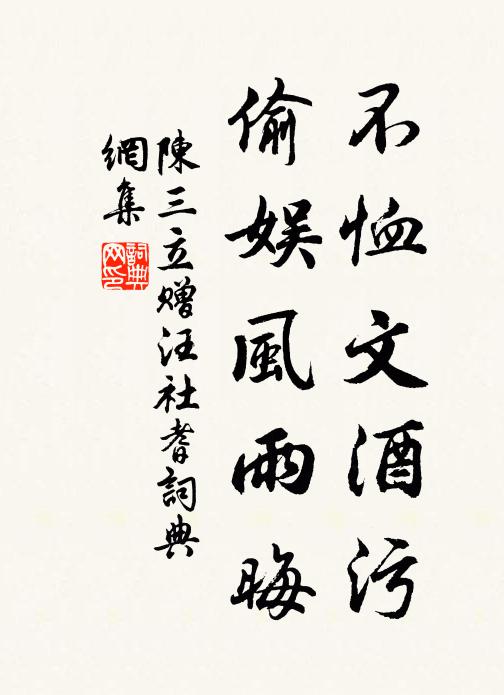 不恤文酒污
偷娱風雨晦
陳三立赠汪社耆詞典
網集
詞典網印